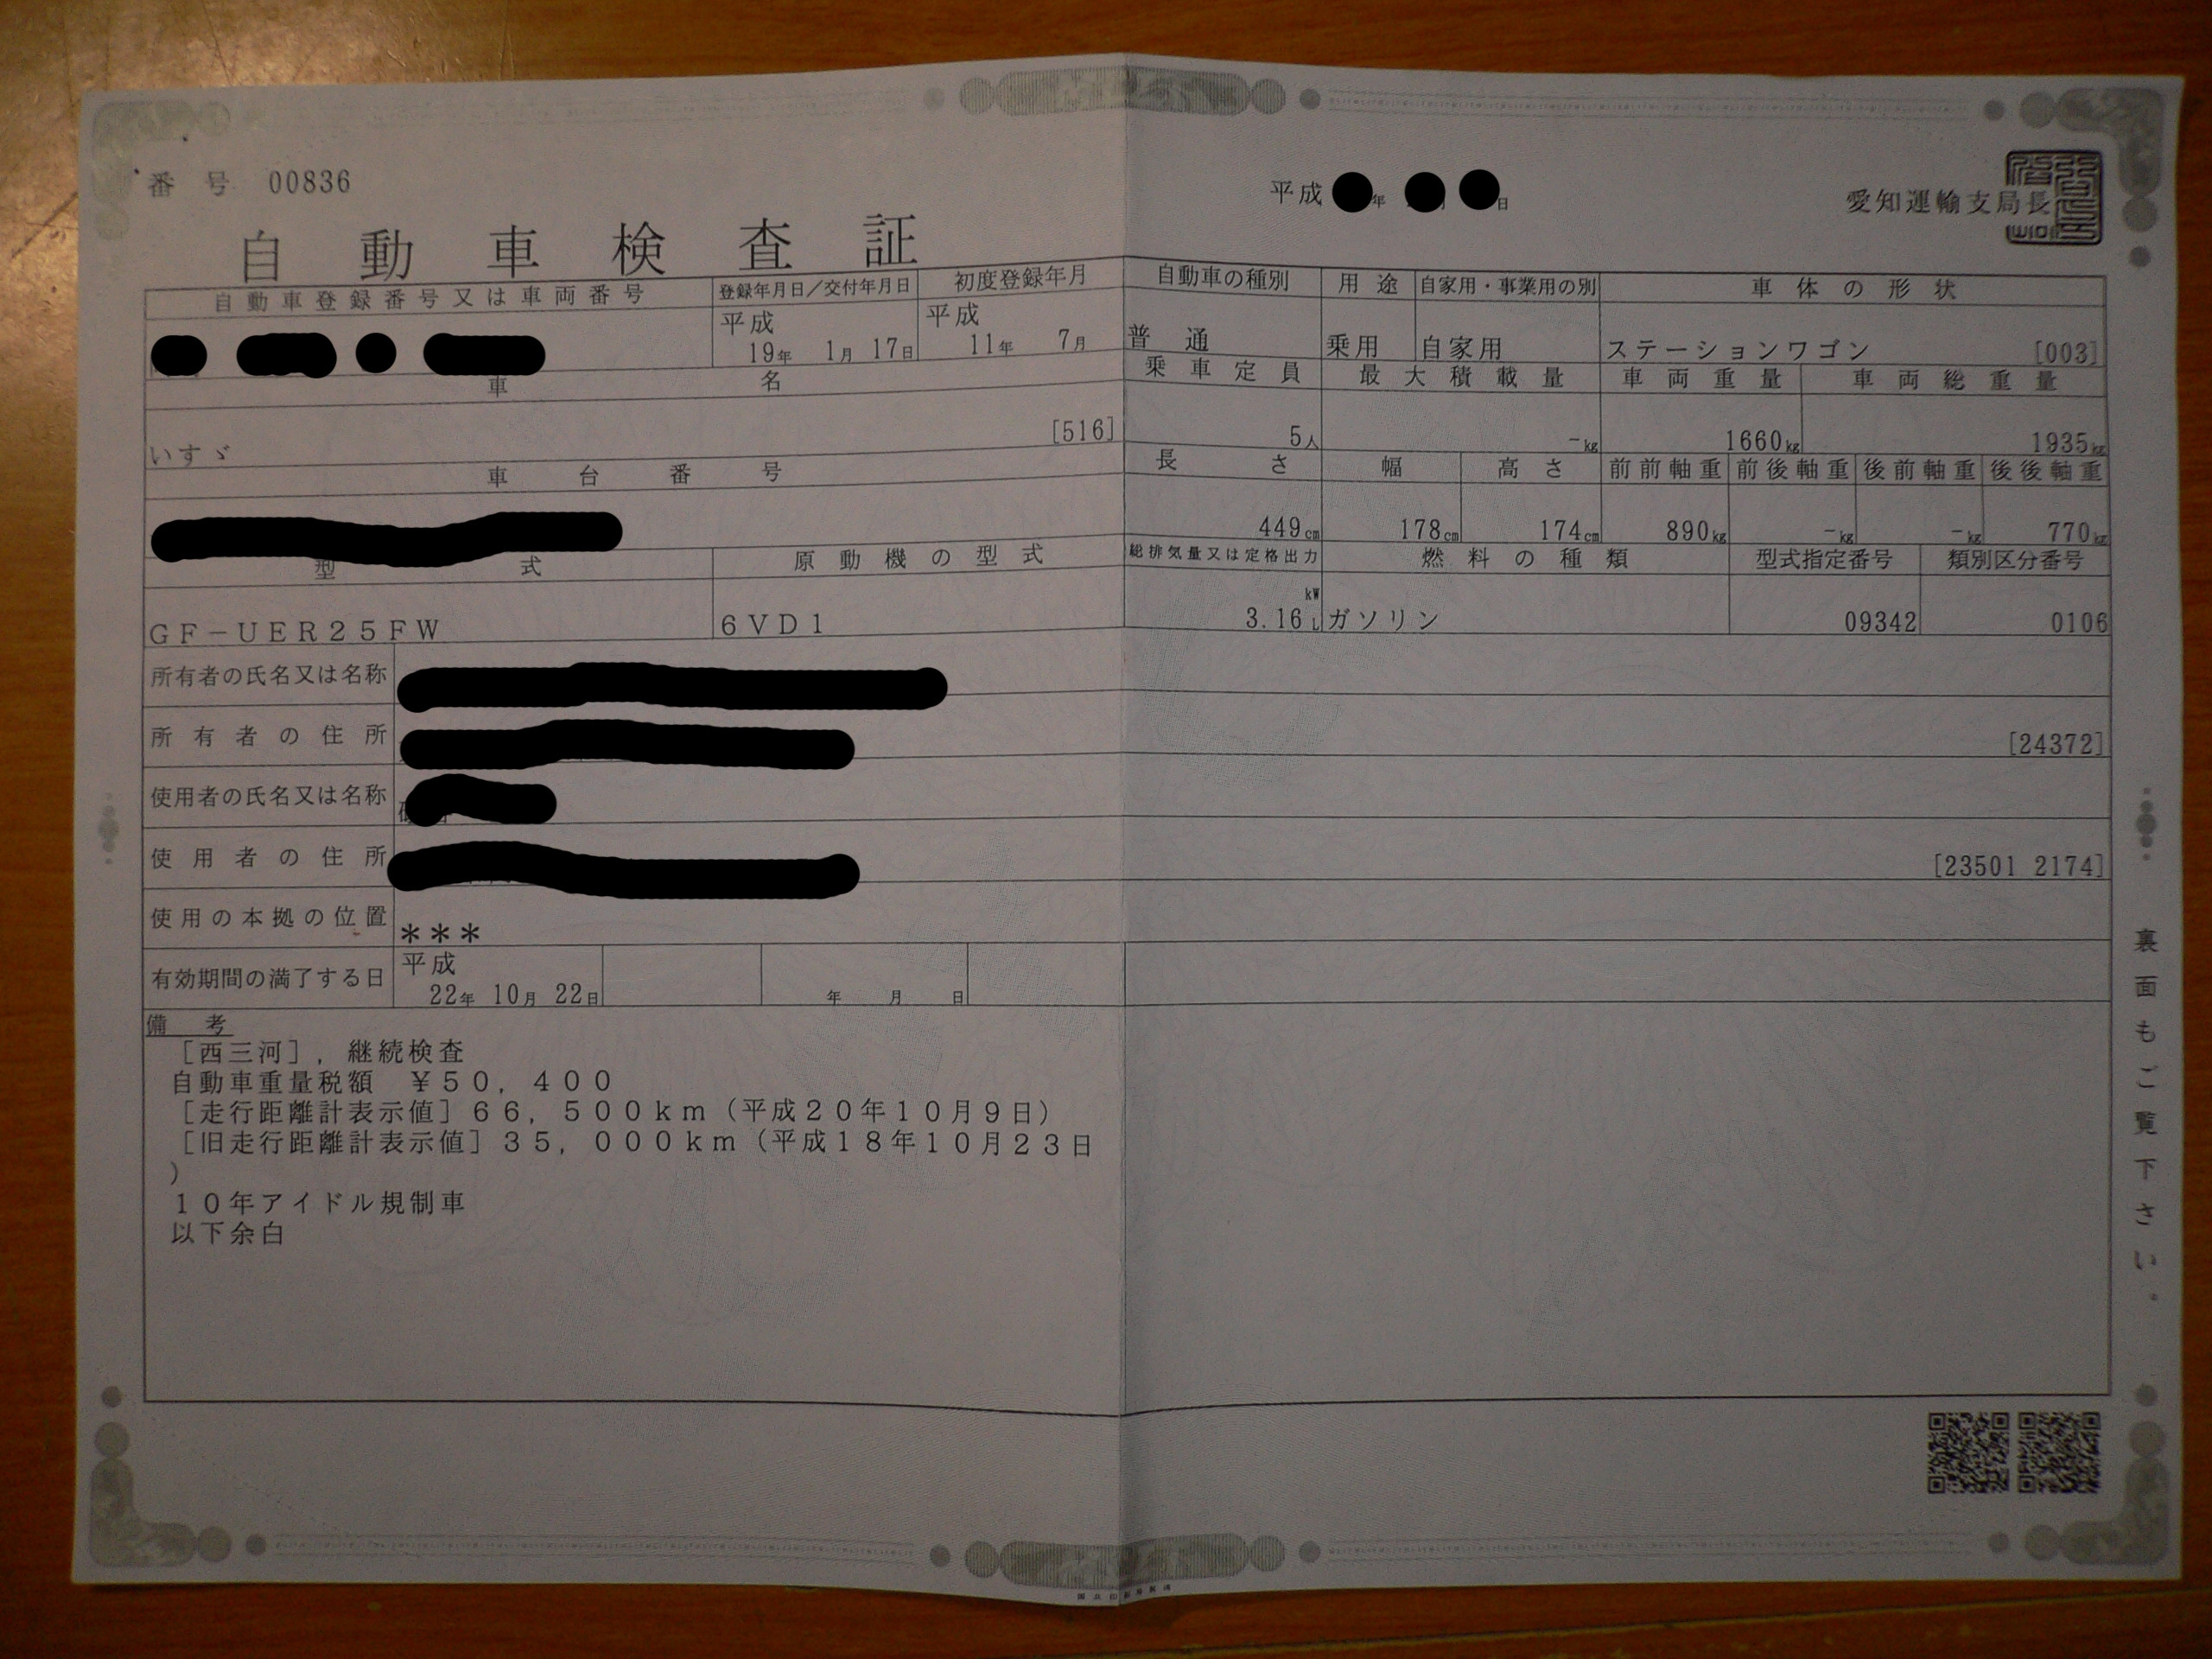 番号 00836
平成 年 日
愛知運輸支局長
自動車検査証
自動車登録番号又は車両番号 登録年月日／交付年月日 初度登録年月 自動車の種別 用途 自家用・事業用の別 車体の形状
平成 19年 1月 17日 平成 11年 7月 普通 乗用 自家用 ステーションワゴン [003]
車名 乗車定員 最大積載量 車両重量 車両総重量
いすゞ [516] 5人 －kg 1660kg 1935kg
車台番号 長さ 幅 高さ 前前軸重 前後軸重 後前軸重 後後軸重
449cm 178cm 174cm 890kg －kg －kg 770kg
型式 原動機の型式 総排気量又は定格出力 燃料の種類 型式指定番号 類別区分番号
kW
GF－UER25FW 6VD1 3.16L ガソリン 09342 0106
所有者の氏名又は名称
所有者の住所 [24372]
使用者の氏名又は名称
使用者の住所 [23501 2174]
使用の本拠の位置 ＊＊＊
有効期間の満了する日 平成 22年 10月 22日 年 月 日
備考
［西三河］，継続検査
自動車重量税額 ￥50，400
［走行距離計表示値］66，500km（平成20年10月9日）
［旧走行距離計表示値］35，000km（平成18年10月23日
）
10年アイドル規制車
以下余白
裏面もご覧下さい。